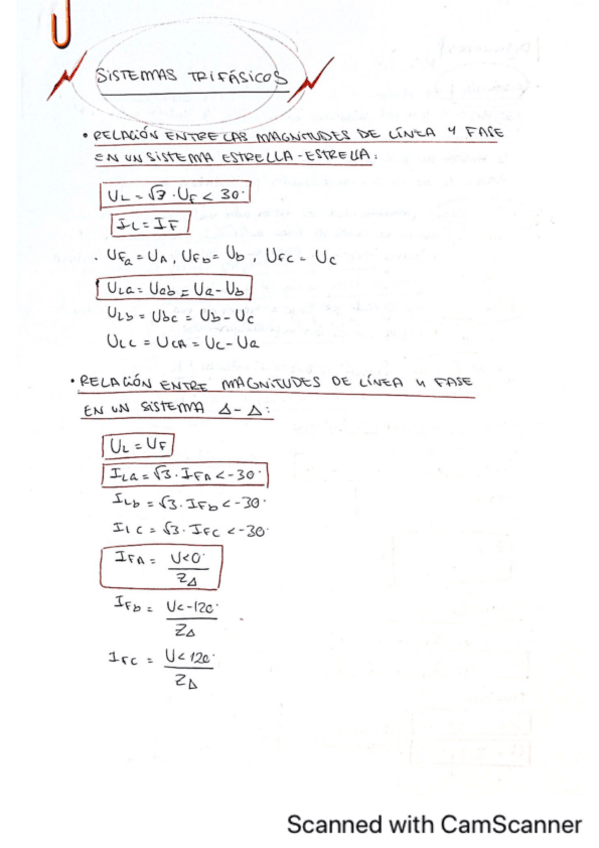 SISTEMAS TRIFÁSICOS
• RELACIÓN ENTRE LAS MAGNITUDES DE LÍNEA Y FASE
EN UN SISTEMA ESTRELLA-ESTRELLA:
UL = √3 · UF < 30°
IL = IF
· UFa = UA, UFb = Ub, UFC = UC
ULa = Uab = Ua - Ub
ULb = Ubc = Ub - Uc
ULC = UCA = UC - Ua
• RELACIÓN ENTRE MAGNITUDES DE LÍNEA Y FASE
EN UN SISTEMA Δ-Δ:
UL = UF
ILa = √3 · IFA < -30°
ILb = √3 · IFb < -30°
ILC = √3 · IFC < -30°
IFA = U<0° / ZΔ
IFb = U<-120° / ZΔ
IFC = U<120° / ZΔ
Scanned with CamScanner